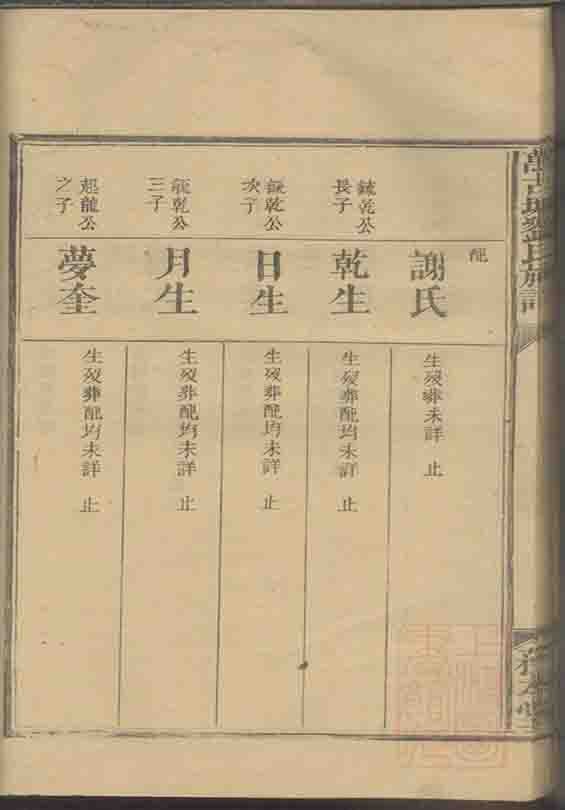 配
謝氏
生歿葬未詳 止
鋐乾公
長子
乾生
生歿葬配均未詳 止
鋐乾公
次子
日生
生歿葬配均未詳 止
鋐乾公
三子
月生
生歿葬配均未詳 止
起龍公
之子
夢奎
生歿葬配均未詳 止